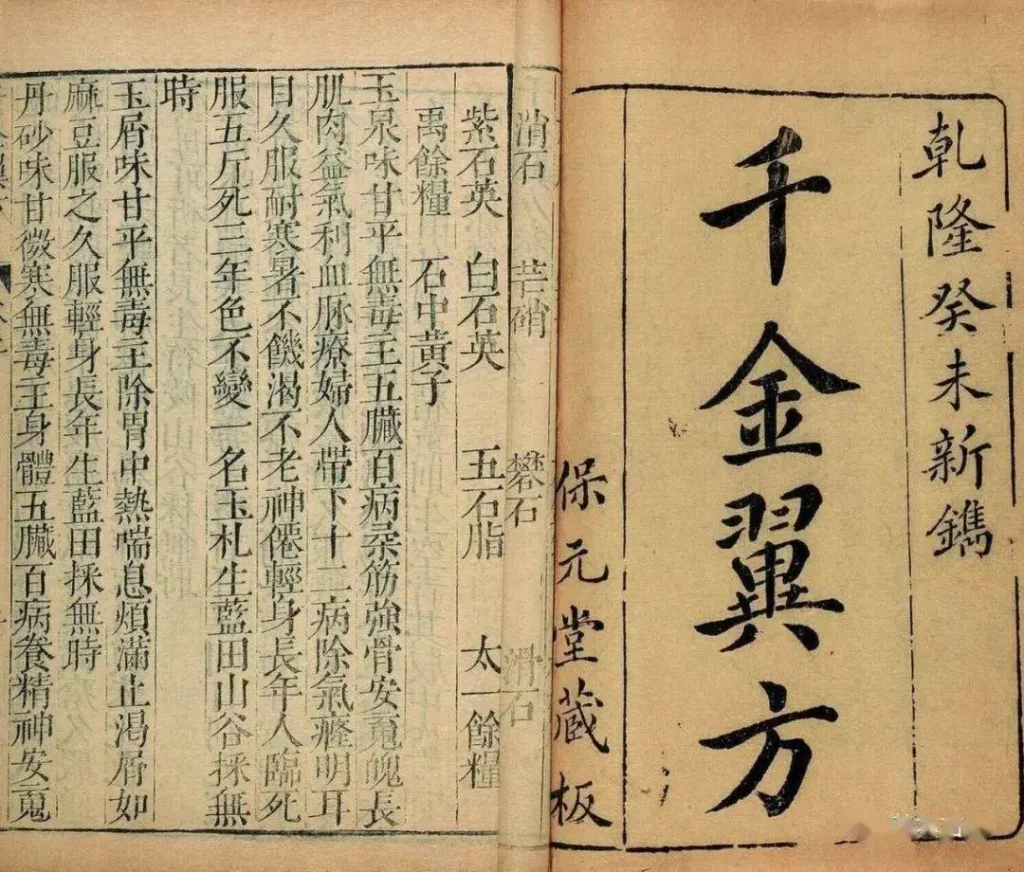 乾隆癸未新鐫
千金翼方
保元堂藏板
消石 芒硝 礬石 滑石
紫石英 白石英 五石脂 太一餘糧
禹餘糧 石中黃子
玉泉味甘平無毒主五臟百病柔筋強骨安䰟魄長
肌肉益氣利血脉療婦人帶下十二病除氣癃明耳
目久服耐寒暑不饑渴不老神僊輕身長年人臨死
服五斤死三年色不變一名玉札生藍田山谷採無
時
玉屑味甘平無毒主除胃中熱喘息煩滿止渴屑如
麻豆服之久服輕身長年生藍田採無時
丹砂味甘微寒無毒主身體五臟百病養精神安䰟